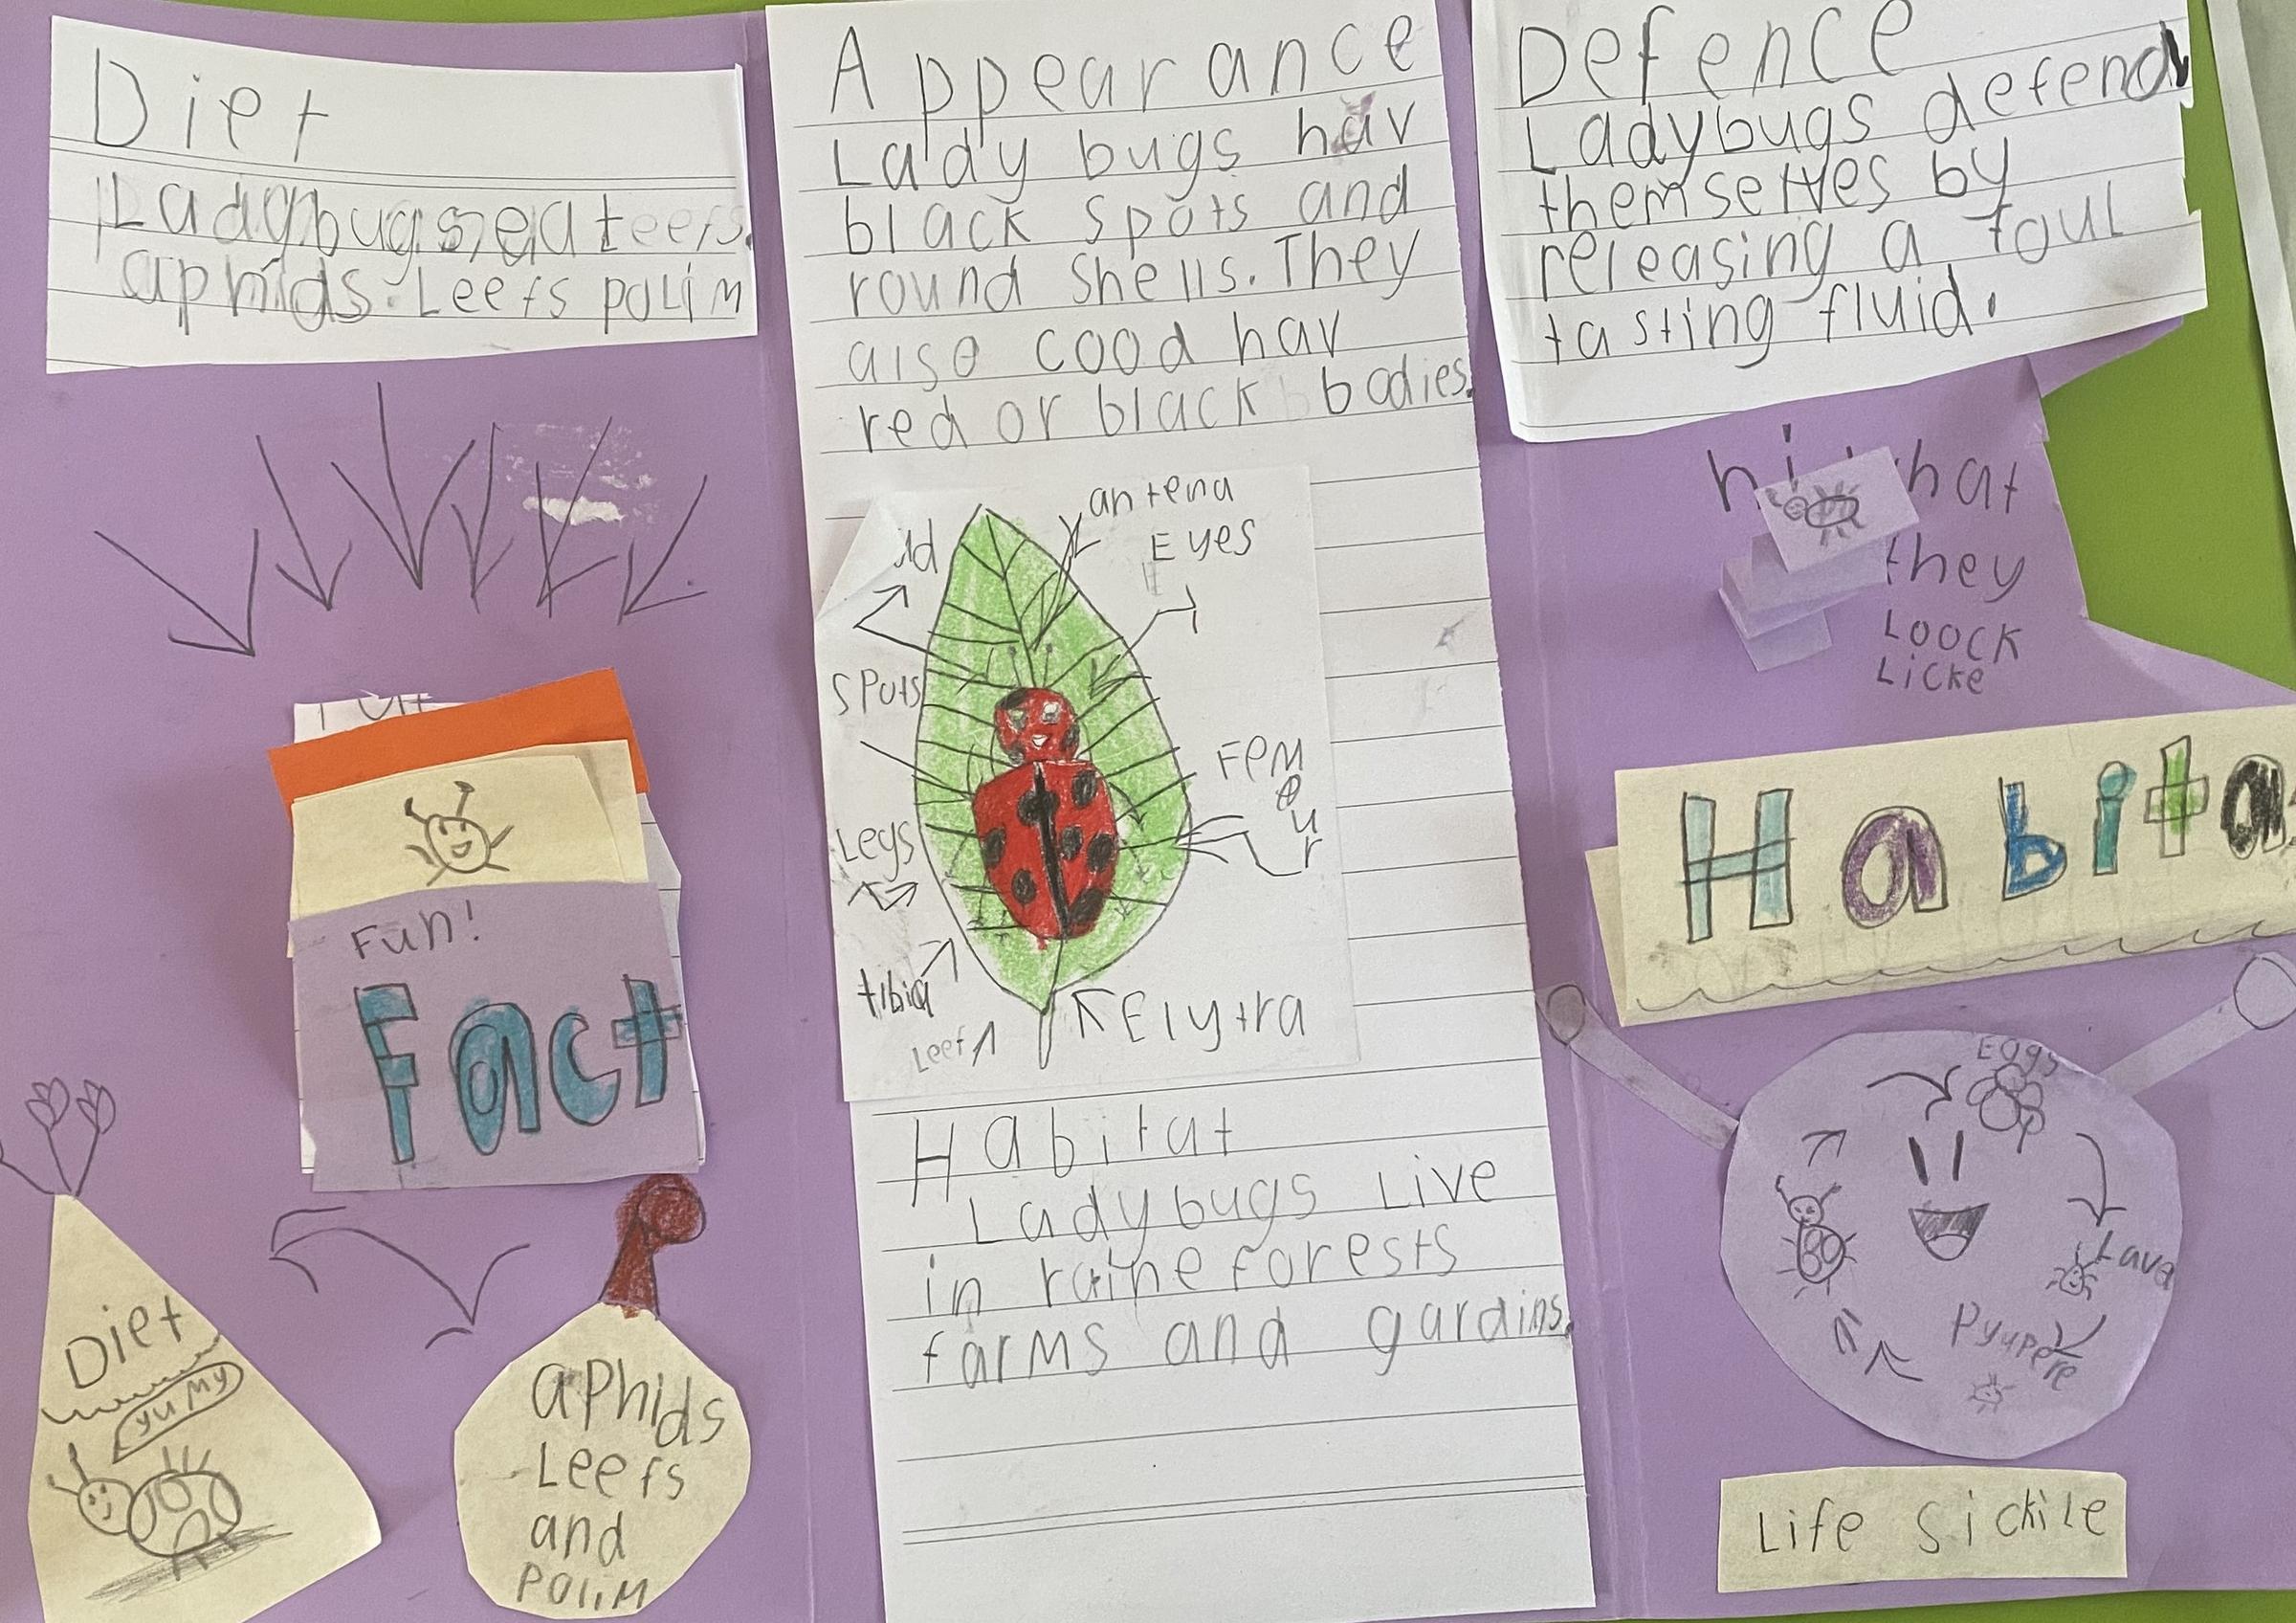 Diet
Ladybugs eat leefs.
aphids. Leefs polim
Fun!
Fact
Diet
yumy
aphids
Leefs
and
Polim
Appearance
Lady bugs hav
black spots and
round shells. They
also cood hav
red or black bodies.
antena
Eyes
Spots
Femour
Legs
tibia
Leef
Elytra
Habitat
Ladybugs Live
in raineforests
farms and gardins.
Defence
Ladybugs defend
themselves by
releasing a foul
tasting fluid.
hat
they
Loock
Licke
Habita
Eggs
Lava
Pyupere
Life sickile